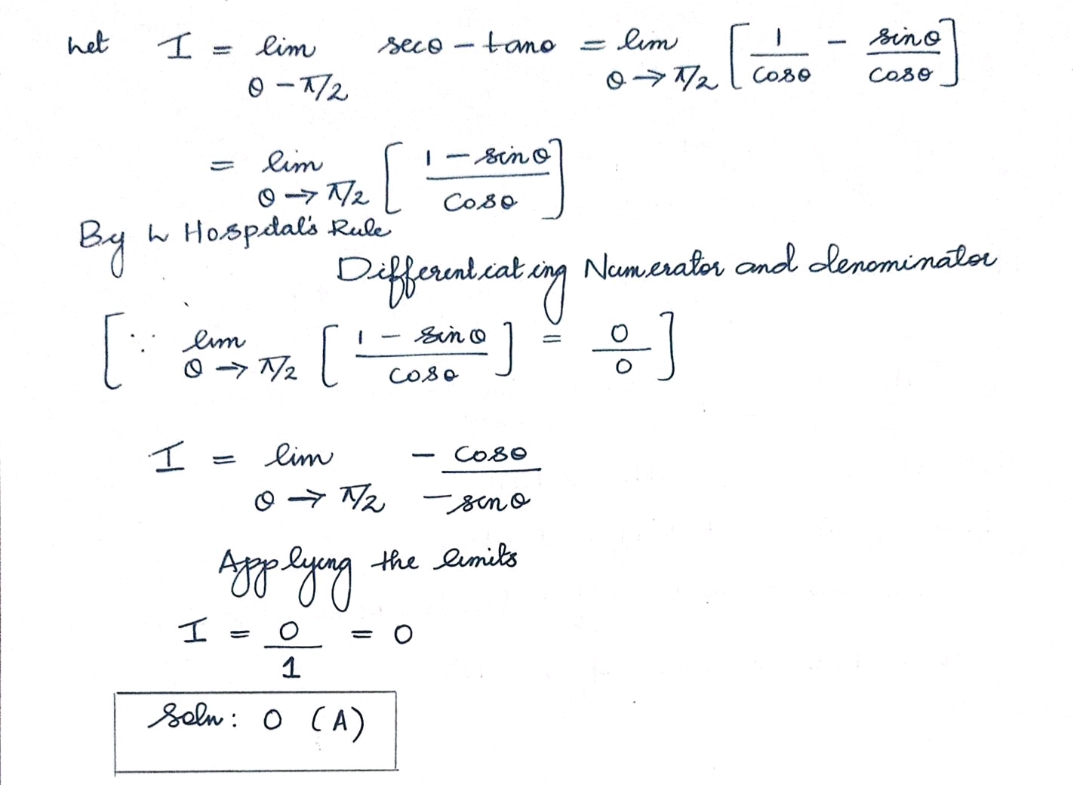 Let I = lim θ - π/2 secθ - tanθ = lim θ → π/2 [ 1/cosθ - sinθ/cosθ ]
= lim θ → π/2 [ 1 - sinθ / cosθ ]
By L Hospital's Rule
Differentiating Numerator and denominator
[ ∵ lim θ → π/2 [ 1 - sinθ / cosθ ] = 0/0 ]
I = lim θ → π/2 - cosθ / - sinθ
Applying the limits
I = 0/1 = 0
Soln: 0 (A)